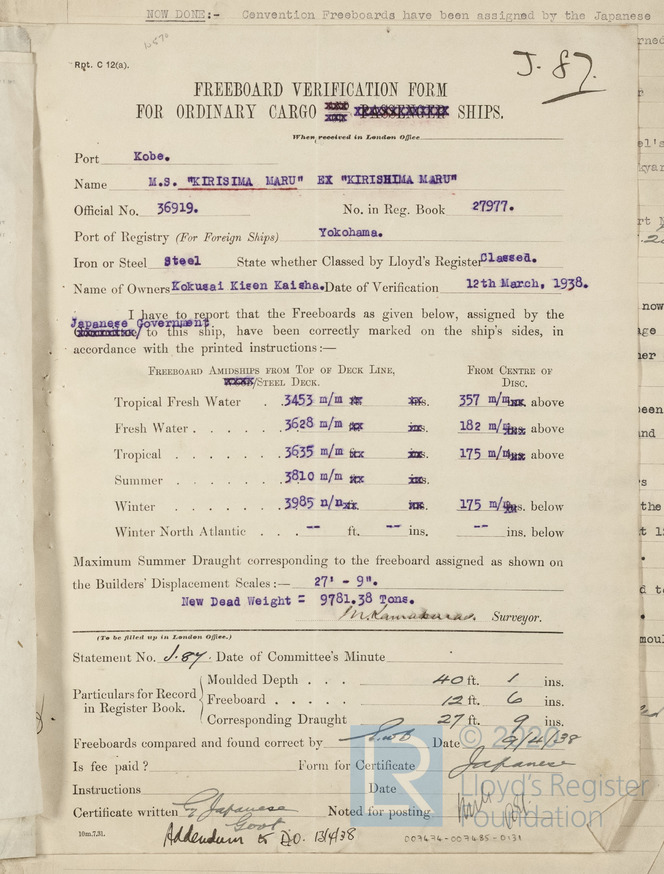 NOW DONE:- Convention Freeboards have been assigned by the Japanese
Rpt. C 12(a).
J. 87.
FREEBOARD VERIFICATION FORM
FOR ORDINARY CARGO SHIPS.
When received in London Office
Port Kobe.
Name M.S. "KIRISIMA MARU" EX "KIRISHIMA MARU"
Official No. 36919. No. in Reg. Book 27977.
Port of Registry (For Foreign Ships) Yokohama.
Iron or Steel Steel State whether Classed by Lloyd's Register Classed.
Name of Owners Kokusai Kisen Kaisha. Date of Verification 12th March, 1938.
I have to report that the Freeboards as given below, assigned by the
Japanese Government
to this ship, have been correctly marked on the ship's sides, in
accordance with the printed instructions:—
Freeboard Amidships from Top of Deck Line, From Centre of
/Steel Deck. Disc.
Tropical Fresh Water . 3453 m/m 357 m/m above
Fresh Water . . . . . 3628 m/m 182 m/m above
Tropical . . . . . . 3635 m/m 175 m/m above
Summer . . . . . . 3810 m/m
Winter . . . . . . 3985 n/n 175 m/m below
Winter North Atlantic . . . -- ft. -- ins. -- ins. below
Maximum Summer Draught corresponding to the freeboard assigned as shown on
the Builders' Displacement Scales:— 27' - 9".
New Dead Weight = 9781.38 Tons.
Surveyor.
(To be filled up in London Office.)
Statement No. J.87. Date of Committee's Minute
Particulars for Record in Register Book.
Moulded Depth . . . 40 ft. 1 ins.
Freeboard . . . . . 12 ft. 6 ins.
Corresponding Draught 27 ft. 9 ins.
Freeboards compared and found correct by Date 9/4/38
Is fee paid? Form for Certificate Japanese
Instructions Date
Certificate written Japanese Govt Noted for posting
10m.7,31.
Addendum to D.O. 13/4/38
007676-007685-0131
© 2020
Lloyd's Register
Foundation
LR